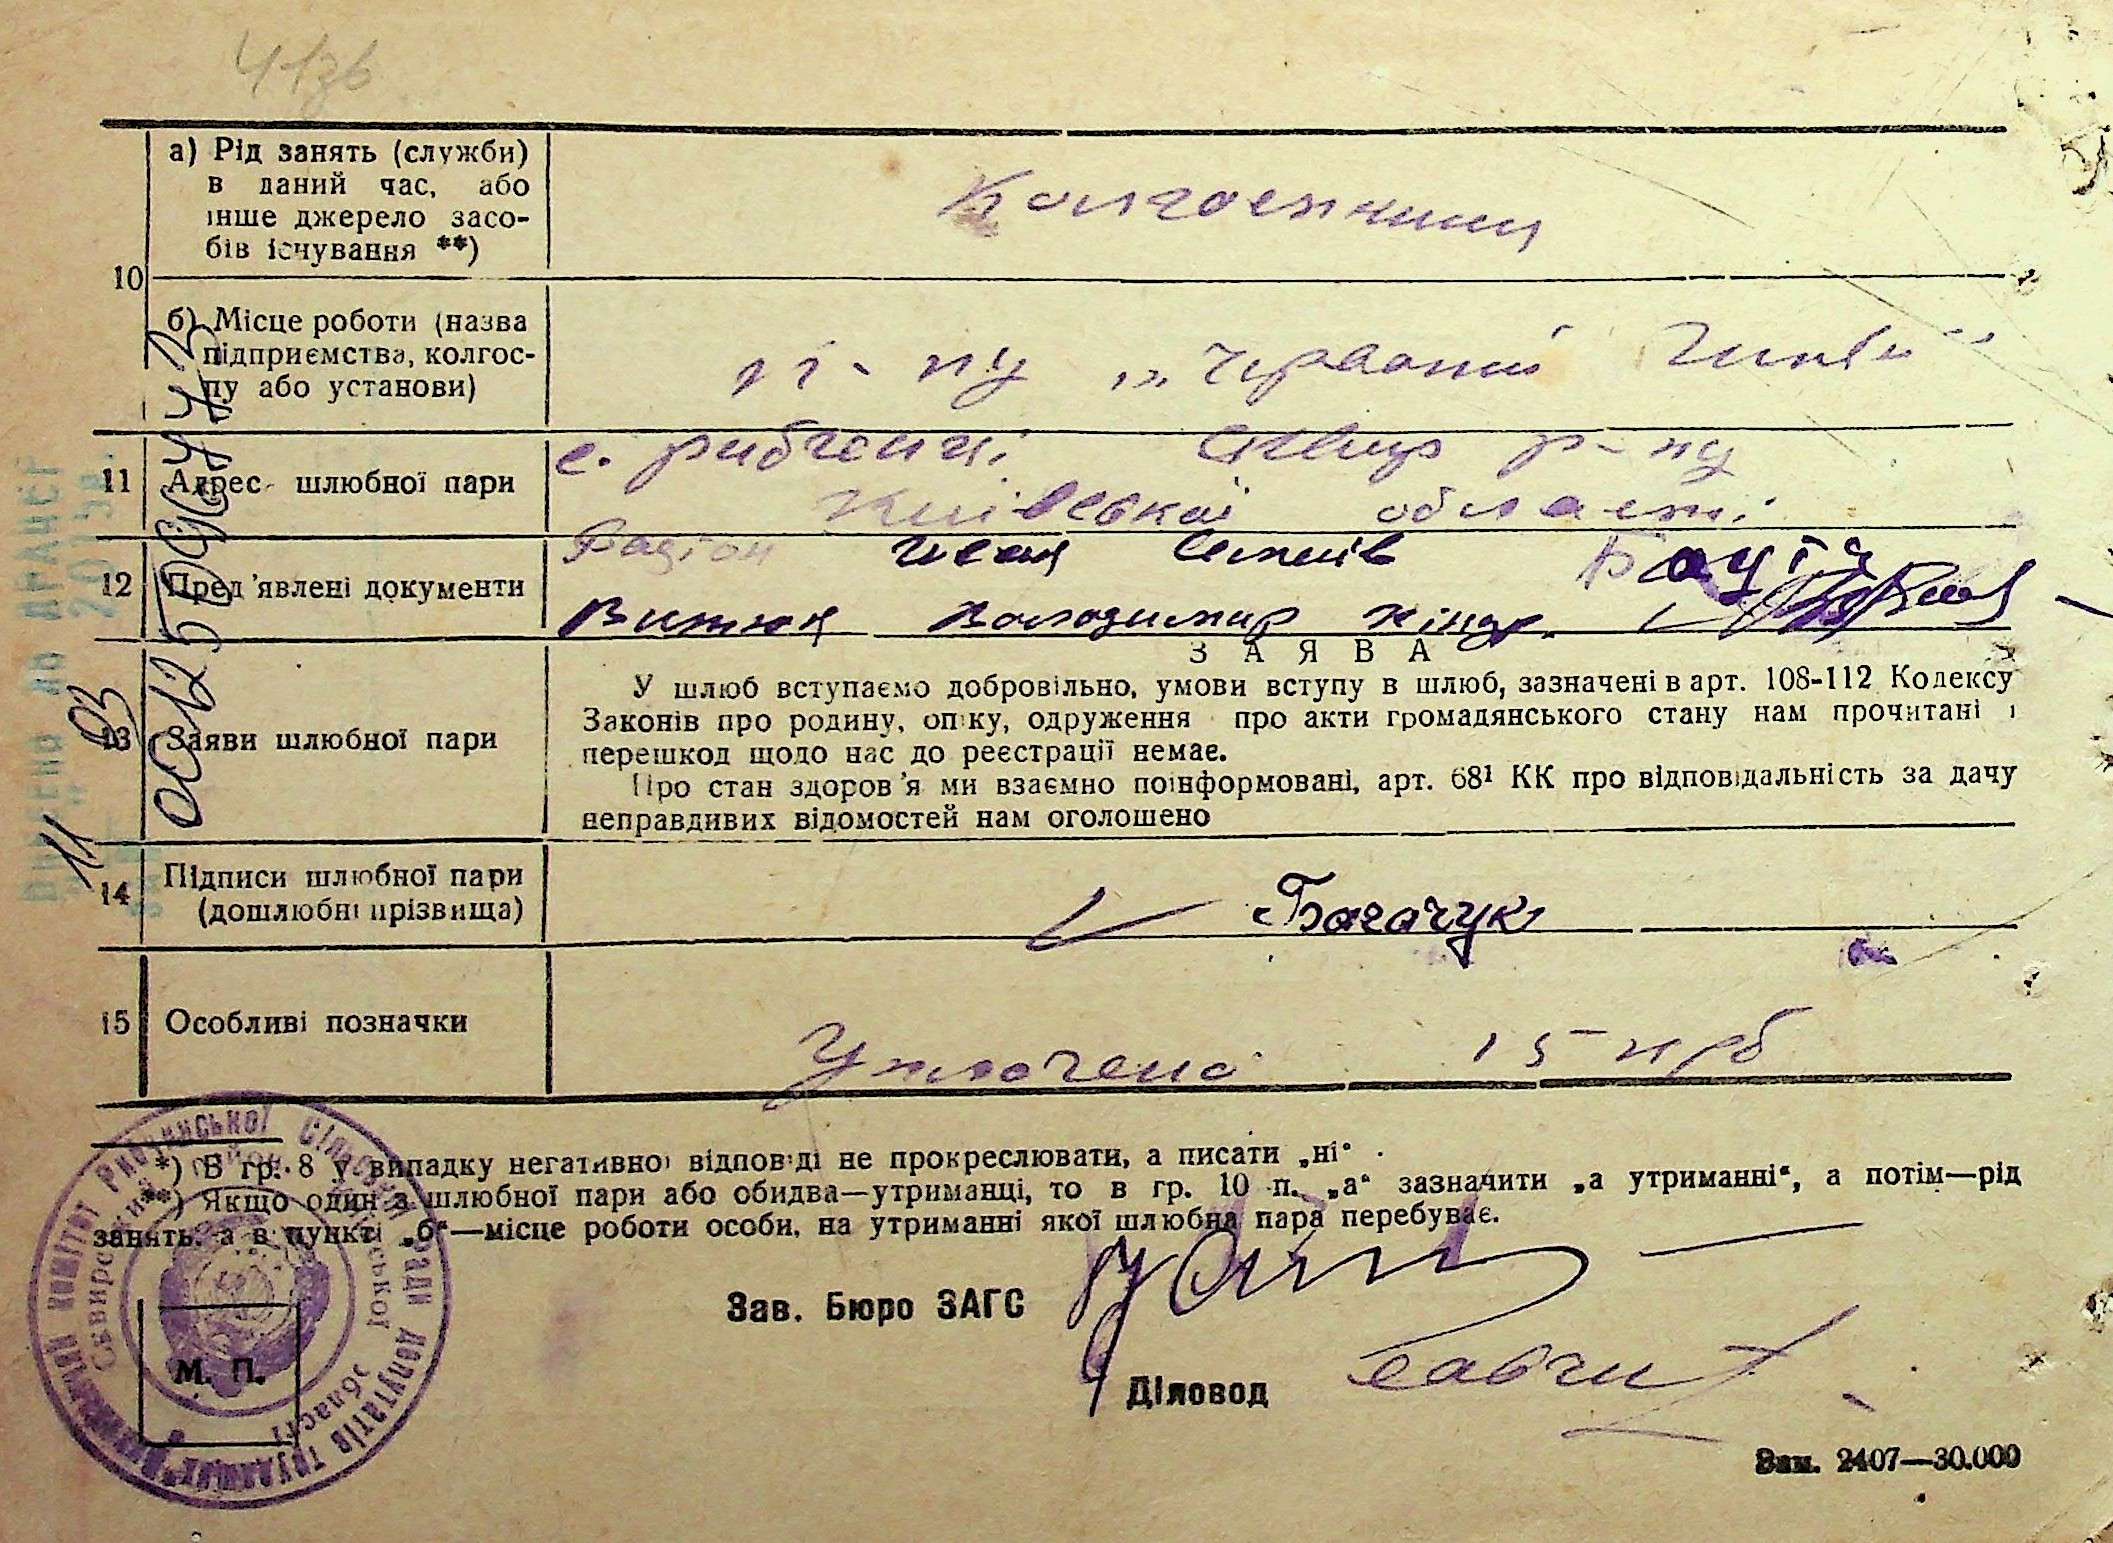 10
а) Рід занять (служби)
в даний час, або
інше джерело засо-
бів існування **)
Колгоспники
б) Місце роботи (назва
підприємства, колгос-
пу або установи)
к-пу „Червоний
11
Адрес шлюбної пари
с. Рибченці Сквир р-ну
Київської області
12
Пред'явлені документи
Іван
Володимир
13
Заяви шлюбної пари
ЗАЯВА
У шлюб вступаємо добровільно, умови вступу в шлюб, зазначені в арт. 108-112 Кодексу
Законів про родину, опіку, одруження про акти громадянського стану нам прочитані і
перешкод щодо нас до реєстрації немає.
Про стан здоров'я ми взаємно поінформовані, арт. 68¹ КК про відповідальність за дачу
неправдивих відомостей нам оголошено
14
Підписи шлюбної пари
(дошлюбні прізвища)
Багачук
15
Особливі позначки
Уплочено 15 крб
*) В гр. 8 у випадку негативної відповіді не прокреслювати, а писати „ні“.
**) Якщо один з шлюбної пари або обидва—утриманці, то в гр. 10 п. „а“ зазначити „а утриманні“, а потім—рід
занять, а в пункті „б“—місце роботи особи, на утриманні якої шлюбна пара перебуває.
Зав. Бюро ЗАГС
Діловод
М. П.
Зам. 2407—30.000